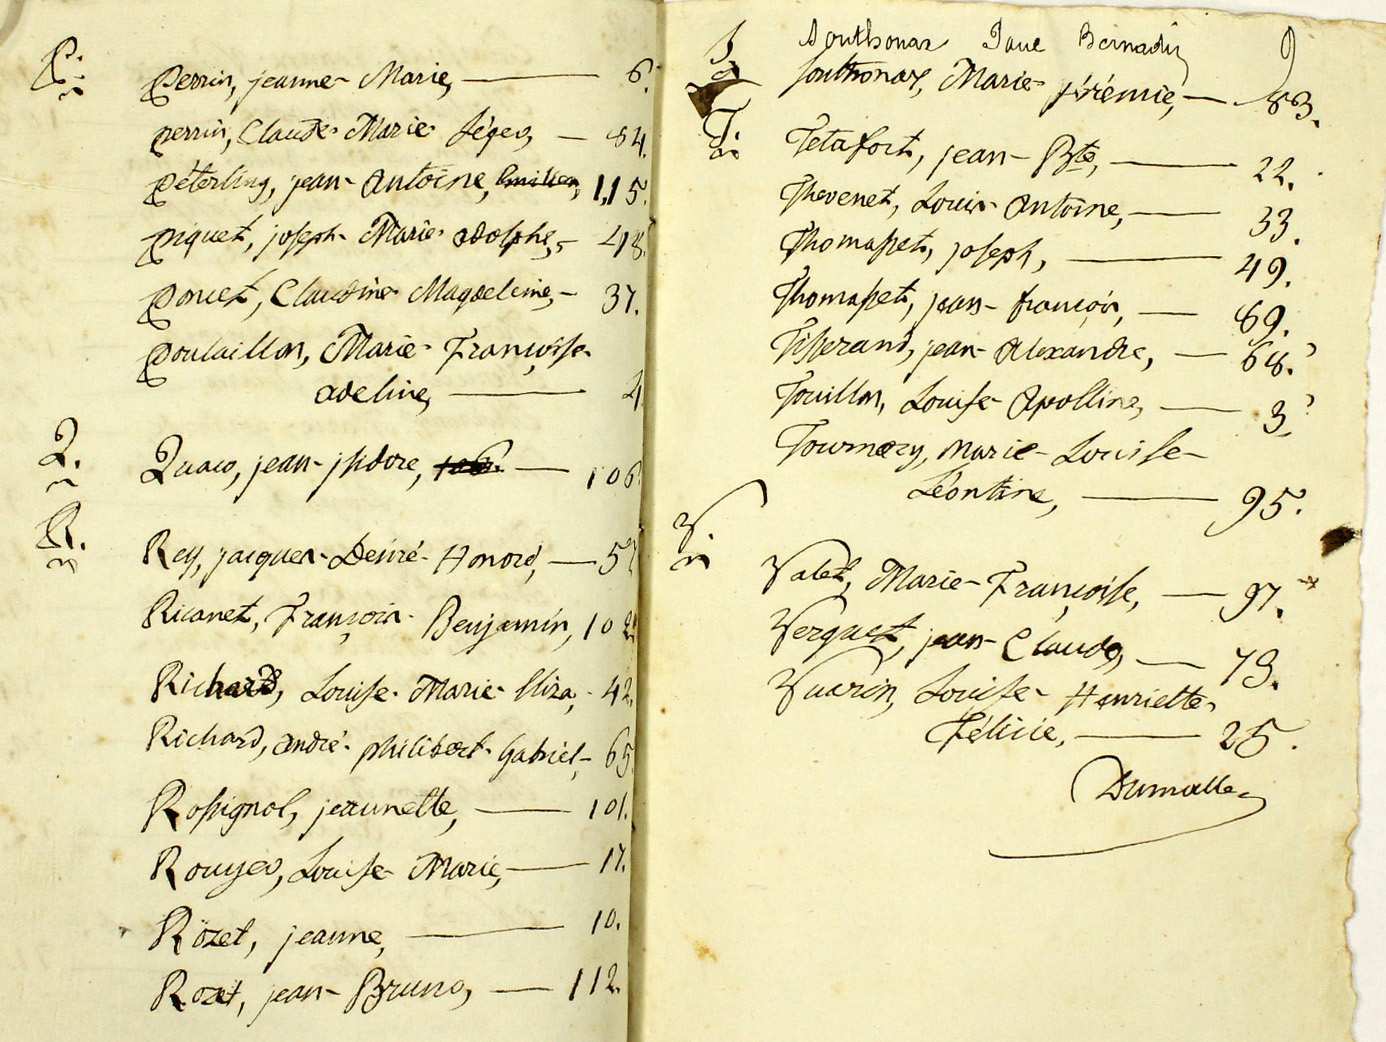 P.
Perrin, jeanne-Marie, — 6.
perrin, Claude-Marie- Léger, — 84.
péterling, jean-Antoine, 115.
piquet, joseph-Marie-adolphe, — 48.
poncet, Claudine-Magdeleine, — 37.
poulaillon, Marie-Françoise-
adeline, — 4
Q.
Quaco, jean-jsidore, 106. — 106
R.
Rey, jacques-Désiré-Honoré, — 57
Ricanet, François-Benjamin, 102
Richard, Louise-Marie-Eliza, - 42.
Richard, andré-philibert-Gabriel, - 65
Rossignol, jeannette, — 101.
Rouyer, Louise-Marie, — 17.
Rozet, jeanne, — 10.
Rozet, jean-Bruno, — 112.
S
Southonax Bernadin
Southonax, Marie-jérémie, — 83.
T.
Tetafort, jean-Bte, — 22.
Thevenet, Louis-Antoine, — 33.
Thomasset, joseph, — 49.
Thomasset, jean-françois, — 89.
Tisserand, jean-Alexandre, — 68.
Touillon, Louise-Apolline, — 3
Tournery, Marie-Louise-
Léontine, — 95.
V.
Valet, Marie-Françoise, — 97.
Verguet, jean-Claude, — 73.
Vuarin, Louise-Henriette-
Félicie, — 25.
Dumolle